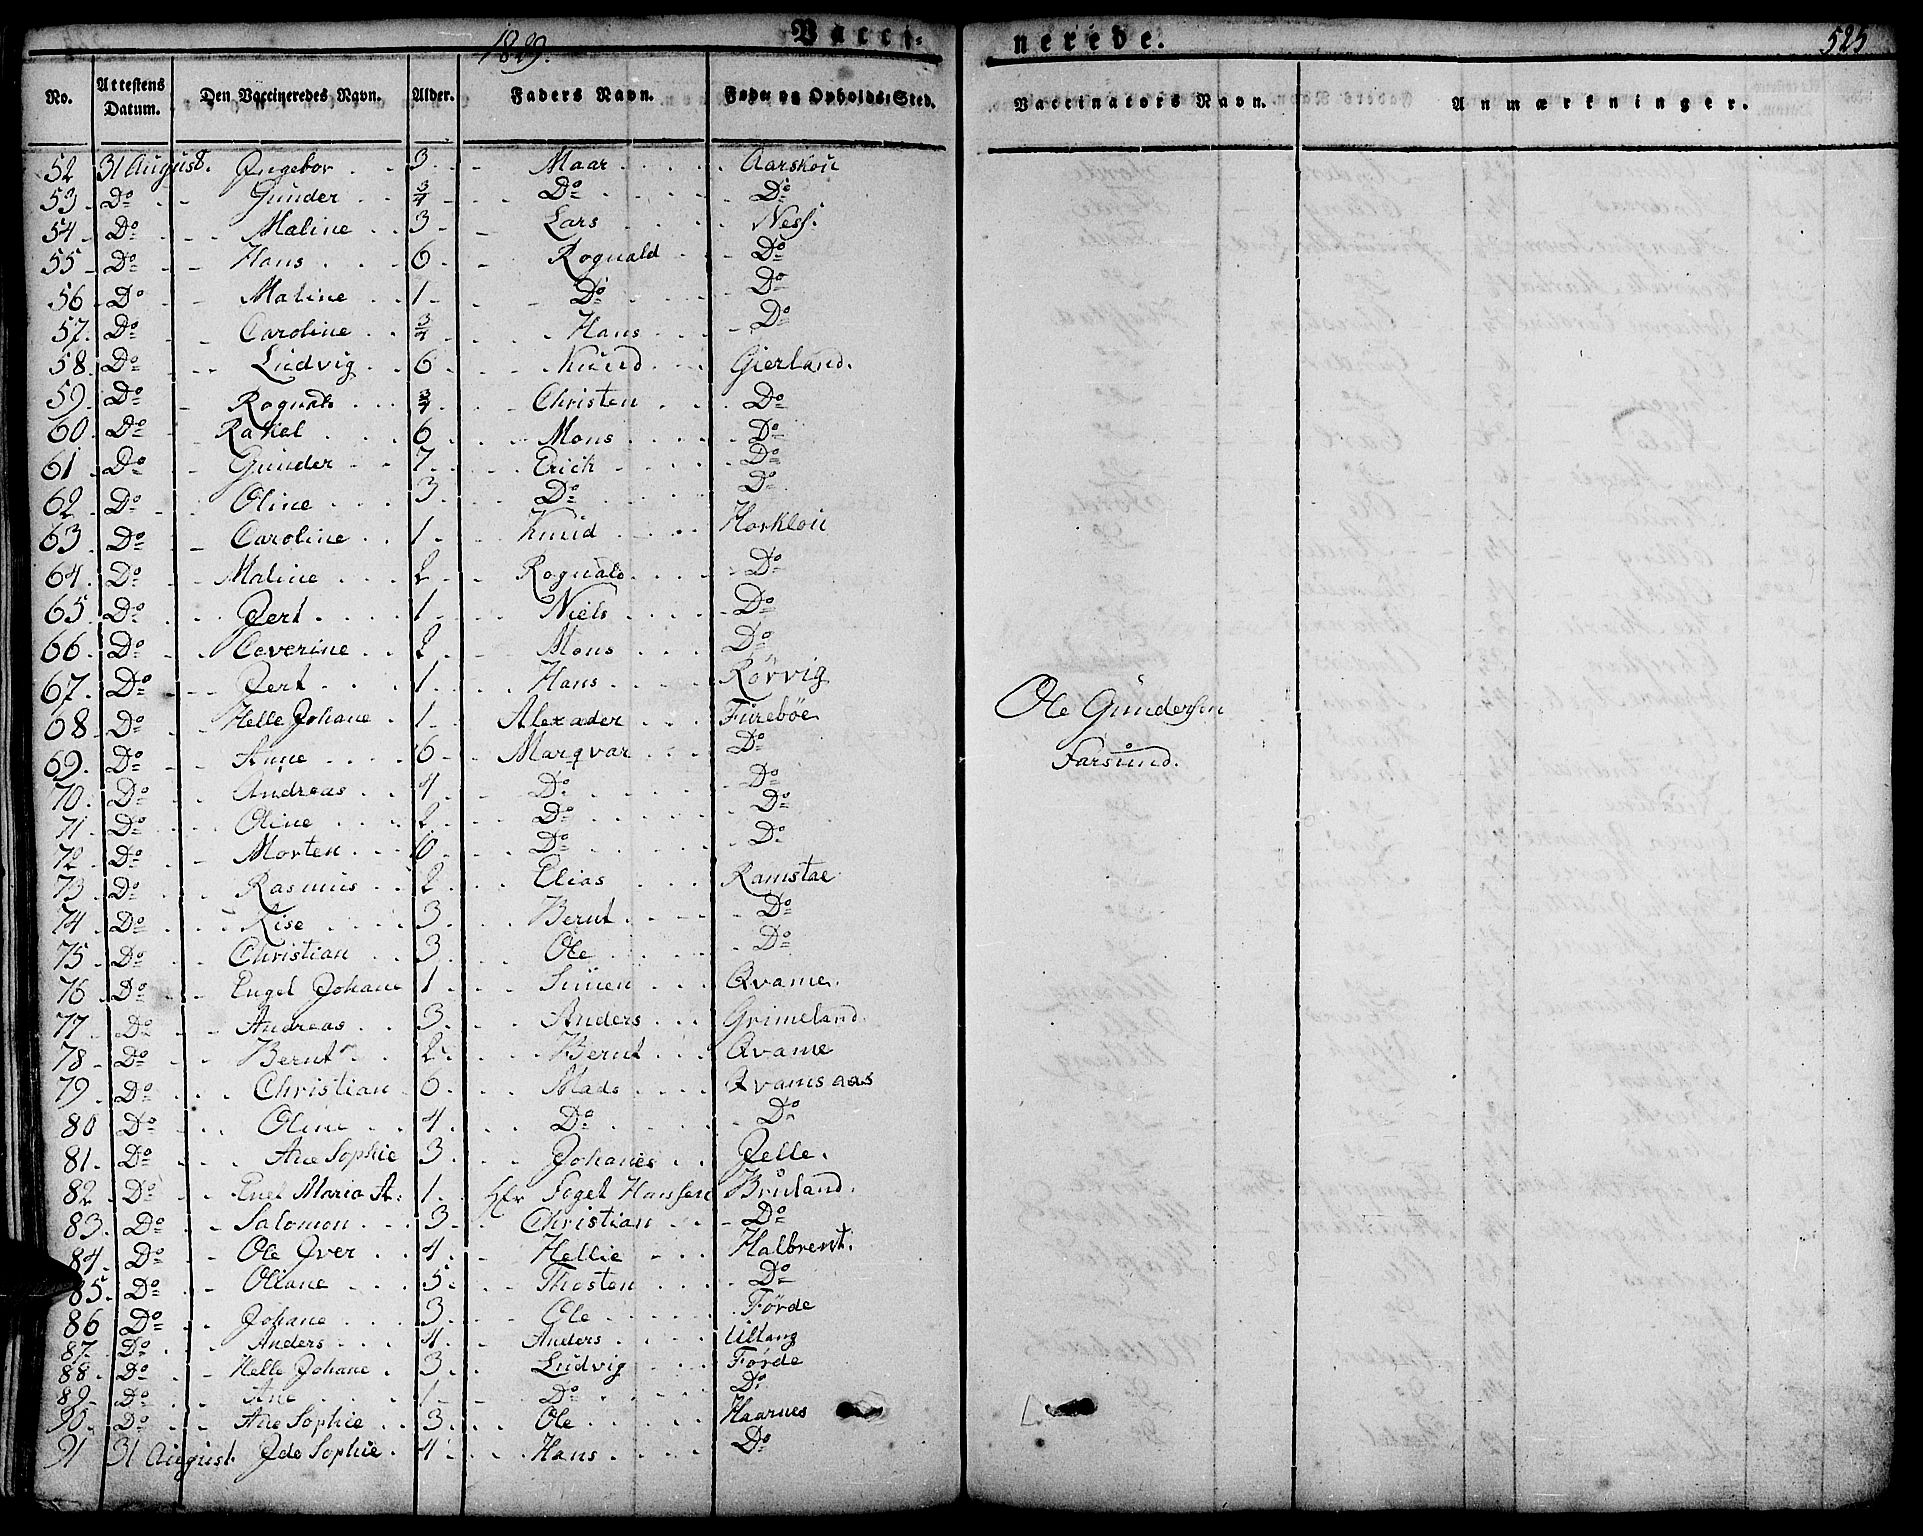 1829. Vacci- nerede. 525
No. Attestens Datum. Den Vaccineredes Navn. Alder. Faders Navn. Føde og Opholds-Sted. Vaccinators Navn. Anmærkninger.
52 31 August. Ingebor 3 Maar Aarskou
53 Do Gunder 3/4 Do Do
54 Do Maline 3 Lars Ness.
55 Do Hans 6 Rognald Do
56 Do Maline 1 Do Do
57. Do Caroline 3/4 Hans Do
58. Do Ludvig 6 Knud Gierland.
59. Do Rognald 3/4 Christen Do
60. Do Rakel 6 Mons Do
61 Do Gunder 7 Erich Do
62 Do Oline 3 Do Do
63 Do Caroline 1 Knud Horklou
64. Do Maline 2 Rognald Do
65 Do Gert 1 Niels Do
66 Do Ceverine 2 Mons Do
67. Do Gert 1 Hans Rørvig
68 Do Helle Johane 1 Alexader Furebøe
69. Do Anne 6 Marqvar Do
70. Do Andreas 4 Do Do
71 Do Oline 2 Do Do
72 Do Morten 6 Do Do
73 Do Rasmus 2 Elias Ramstae
74 Do Rise 3 Bernt Do
75 Do Christian 3 Ole Do
76 Do Engel Johane 1 Simen Qvame.
77 Do Andreas 3 Anders Grimeland.
78 Do Bernt 2 Bernt Qvame
79 Do Christian 6 Mads Qvamsaas
80 Do Oline 4 Do Do
81. Do Ane Sophie 3 Johanes Jelle.
82 Do Maria 1 Hr Foget Hanssen Bruland.
83. Do Salomon 3 Christian Do
84. Do Ole Iver 4 Hellie Halbrent.
85. Do Oliane 5 Thosten Do
86 Do Johane 3 Ole Førde
87. Do Anders 4 Anders Ultang
88 Do Helle Johane 3 Ludvig Førde
89. Do Ane 1 Do Do
90. Do Ane Sophie 3 Ole Haarnes
91 31 August. Ide Sophie 4 Hans Do
Ole Gundersen
Farsund.